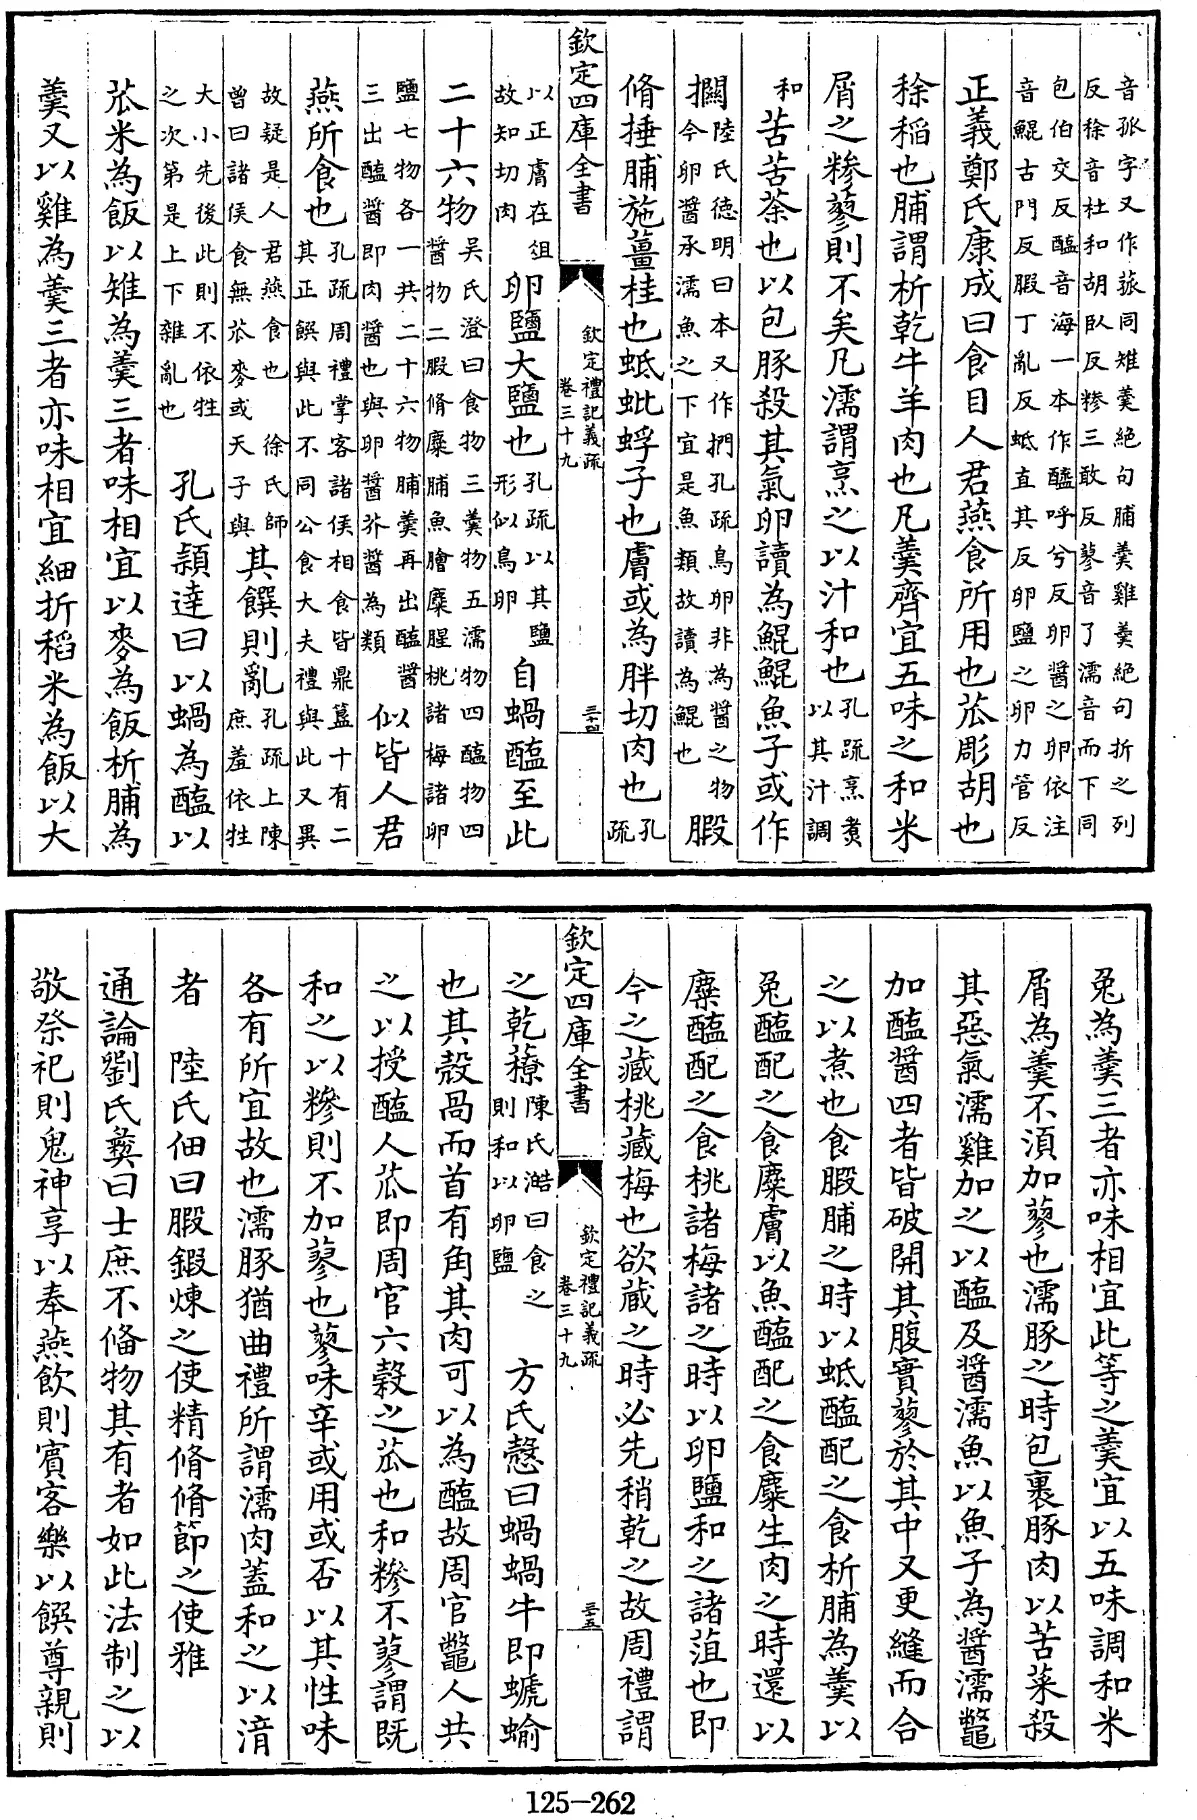 音孤字又作菰同雉羹絶句脯羹雞羹絶句折之列
反稌音杜和胡臥反糝三敢反蓼音了濡音而下同
包伯交反醢音海一本作醯呼兮反卵醬之卵依注
音鯤古門反腶丁亂反蚳直其反卵鹽之卵力管反
正義鄭氏康成曰食目人君燕食所用也苽彫胡也
稌稻也脯謂析乾牛羊肉也凡羹齊宜五味之和米
屑之糝蓼則不矣凡濡謂烹之以汁和也孔疏烹煮以其汁調
和苦苦荼也以包豚殺其氣卵讀為鯤鯤魚子或作
攔陸氏德明曰本又作捫孔疏鳥卵非為醬之物今卵醬承濡魚之下宜是魚類故讀為鯤也腶
脩捶脯施薑桂也蚳蚍蜉子也膚或為胖切肉也孔疏
欽定四庫全書 欽定禮記義疏 卷三十九 三十四
以正膚在俎故知切肉卵鹽大鹽也孔疏以其鹽形似鳥卵自蝸醢至此
二十六物吳氏澄曰食物三羹物五濡物四醢物四醬物二腶脩麋脯魚膾麋腥桃諸梅諸卵
鹽七物各一共二十六物脯羹再出醢醬三出醢醬即肉醬也與卵醬芥醬為類似皆人君
燕所食也孔疏周禮掌客諸侯相食皆鼎簋十有二其正饌與此不同公食大夫禮與此又異
故疑是人君燕食也 徐氏師曾曰諸侯食無苽麥或天子與其饌則亂孔疏上陳庶羞依牲
大小先後此則不依牲之次第是上下雜亂也 孔氏穎達曰以蝸為醢以
苽米為飯以雉為羹三者味相宜以麥為飯析脯為
羹又以雞為羹三者亦味相宜細折稻米為飯以大
兔為羹三者亦味相宜此等之羹宜以五味調和米
屑為羹不須加蓼也濡豚之時包裹豚肉以苦菜殺
其惡氣濡雞加之以醢及醬濡魚以魚子為醬濡鼈
加醢醬四者皆破開其腹實蓼於其中又更縫而合
之以煮也食腶脯之時以蚳醢配之食析脯為羹以
兔醢配之食麋膚以魚醢配之食麋生肉之時還以
麋醢配之食桃諸梅諸之時以卵鹽和之諸菹也即
今之藏桃藏梅也欲蔵之時必先稍乾之故周禮謂
欽定四庫全書 欽定禮記義疏 卷三十九 三五
之乾䕩陳氏澔曰食之則和以卵鹽 方氏慤曰蝸蝸牛即螔蝓
也其殼咼而首有角其肉可以為醢故周官鼈人共
之以授醢人苽即周官六穀之苽也和糝不蓼謂既
和之以糝則不加蓼也蓼味辛或用或否以其性味
各有所宜故也濡豚猶曲禮所謂濡肉蓋和之以湆
者 陸氏佃曰腶鍛煉之使精脩脩節之使雅
通論劉氏彝曰士庶不備物其有者如此法制之以
敬祭祀則鬼神享以奉燕飲則賓客樂以饌尊親則
125-262